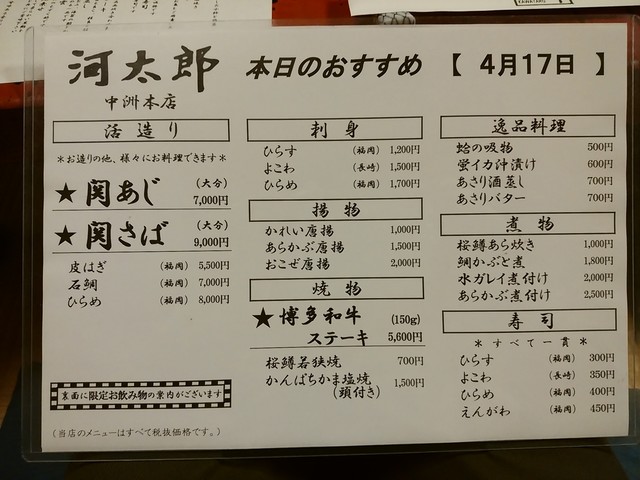 河太郎
中洲本店
本日のおすすめ 【 4月17日 】
活造り
＊お造りの他、様々にお料理できます＊
★ 関あじ (大分) 7,000円
★ 関さば (大分) 9,000円
皮はぎ (福岡) 5,500円
石鯛 (福岡) 7,000円
ひらめ (福岡) 8,000円
裏面に限定お飲み物の案内がございます
(当店のメニューはすべて税抜価格です。)
刺身
ひらす (福岡) 1,200円
よこわ (長崎) 1,500円
ひらめ (福岡) 1,700円
揚物
かれい唐揚 1,000円
あらかぶ唐揚 1,500円
おこぜ唐揚 2,000円
焼物
★ 博多和牛 (150g)
ステーキ 5,600円
桜鱒若狭焼 700円
かんぱちかま塩焼 1,500円
(頭付き)
逸品料理
蛤の吸物 500円
蛍イカ沖漬け 600円
あさり酒蒸し 700円
あさりバター 700円
煮物
桜鱒あら炊き 1,000円
鯛かぶと煮 1,800円
水ガレイ煮付け 2,000円
あらかぶ煮付け 2,500円
寿司
＊すべて一貫＊
ひらす (福岡) 300円
よこわ (長崎) 350円
ひらめ (福岡) 400円
えんがわ (福岡) 450円